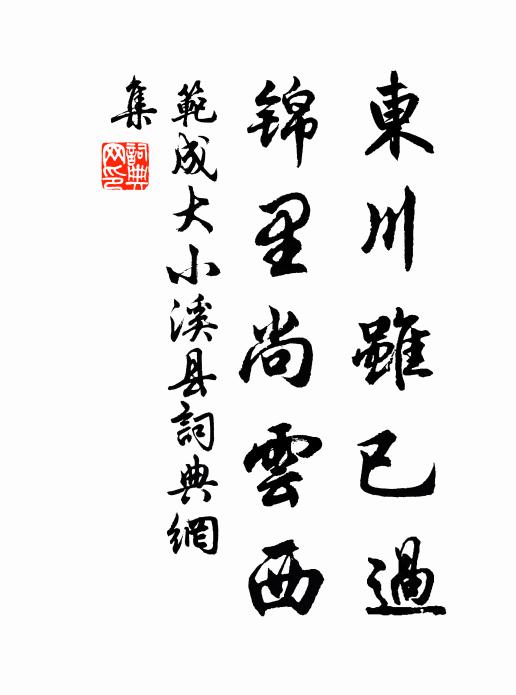 東川雖已過
锦里尚雲西
範成大小溪县詞典網
集
詞典
网印